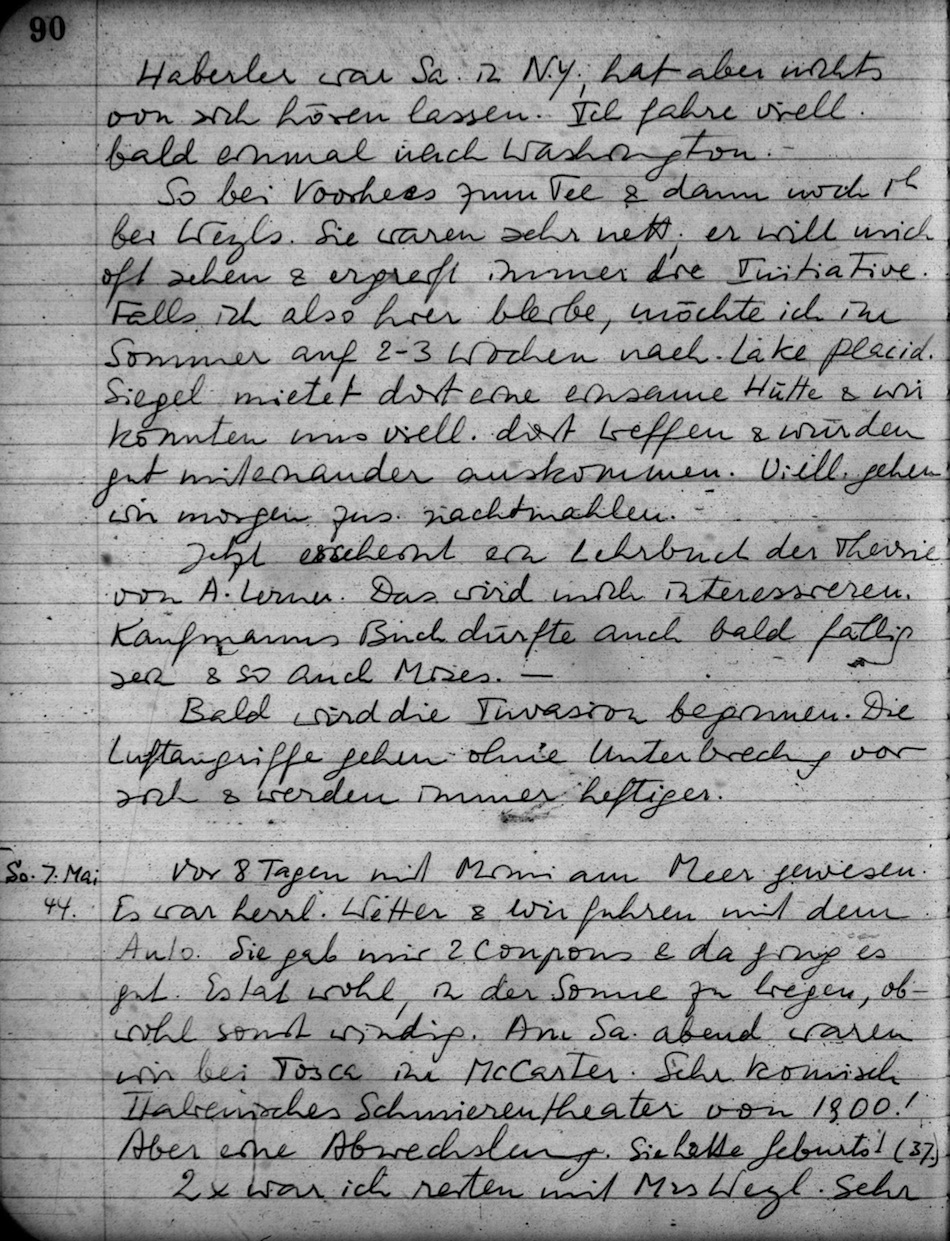 90
Haberler war Sa. in N.Y., hat aber nichts
von sich hören lassen. Ich fahre viell.
bald einmal nach Washington. –
So bei Voorhees zum Tee & dann noch
bei Weyls. Sie waren sehr nett; er will mich
oft sehen & ergreift immer die Initiative.
Falls ich also hier bleibe, möchte ich im
Sommer auf 2-3 Wochen nach Lake Placid.
Siegel mietet dort eine einsame Hütte & wir
könnten uns viell. dort treffen & würden
gut miteinander auskommen. Viell. gehen
wir morgen zus. nachtmahlen. –
Jetzt erscheint ein Lehrbuch der Theorie
von A. Lerner. Das wird mich interessieren.
Kaufmanns Buch dürfte auch bald fällig
sein & so auch Mises. –
Bald wird die Invasion beginnen. Die
Luftangriffe gehen ohne Unterbrechg vor
sich & werden immer heftiger.
So. 7. Mai
44.
Vor 8 Tagen mit Mimi am Meer gewesen.
Es war herrl. Wetter & wir fuhren mit dem
Auto. Sie gab mir 2 Coupons & da ging es
gut. Es tat wohl, in der Sonne zu liegen, ob-
wohl sonst windig. Am Sa. abend waren
wir bei Tosca im McCarter. Sehr komisch
Italienisches Schmierentheater von 1900!
Aber eine Abwechslung. Sie hatte Geburtst (37)
2x war ich reiten mit Mrs Weyl. Sehr